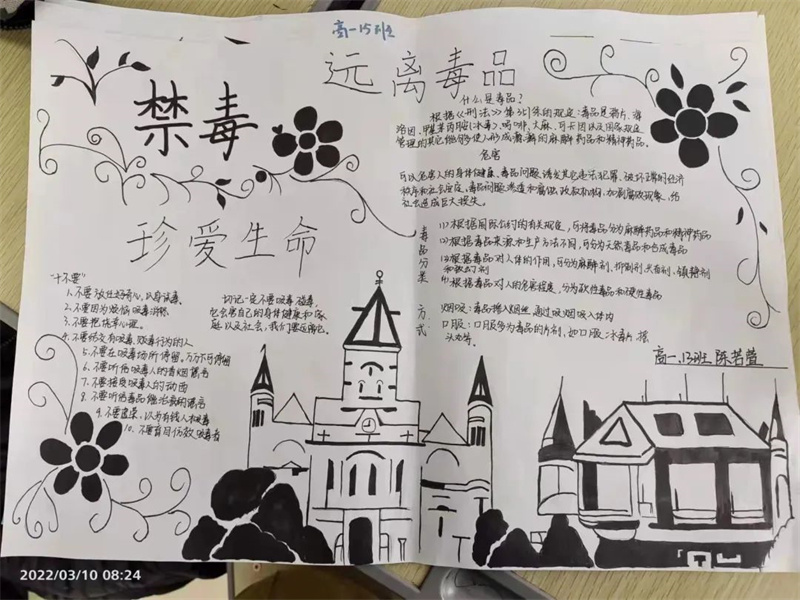 高一15班
远离毒品
禁毒
什么是毒品?
根据《刑法》第357条的规定:毒品是鸦片、海
洛因、甲基苯丙胺(冰毒)、吗啡、大麻、可卡因以及国家规定
管理的其它能够使人形成瘾癖的麻醉药品和精神药品。
危害
可以危害人的身体健康、毒品问题诱发其它违法犯罪、破坏正常的经济
秩序和社会
社会造成巨大损失。
珍爱生命
毒品分类
(1)根据国际公约的有关规定,可将毒品分为麻醉药品和精神药品
(2)根据毒品来源和生产方法不同,可分为天然毒品和合成毒品
(3)根据毒品对人体的作用,可分为麻醉剂、抑制剂、兴奋剂、镇静剂
和致幻剂
(4)根据毒品对人的危害程度,分为软性毒品和硬性毒品
方式
烟吸:毒品掺入烟丝,通过吸烟吸入体内
口服:口服多为毒品的片剂,如口服冰毒片 摇
头丸等.
高一.13班 陈若萱
"十不要"
1.不要放任好奇心,以身试毒.
2.不要因为烦恼吸毒消愁
3.不要抱侥幸心理.
4.不要结交有吸毒、贩毒行为的人
5.不要在吸毒场所停留,万万不可停留
6.不要听信吸毒人的
7.不要接受吸毒人的
8.不要听信毒品能治病的谎言
9.不要虚荣,以为有钱人才吸毒
10.不要盲目仿效吸毒者
切记一定不要吸毒 碰毒,
它会害自己的身体健康和家
庭以及社会,我们要远离它.
2022/03/10 08:24